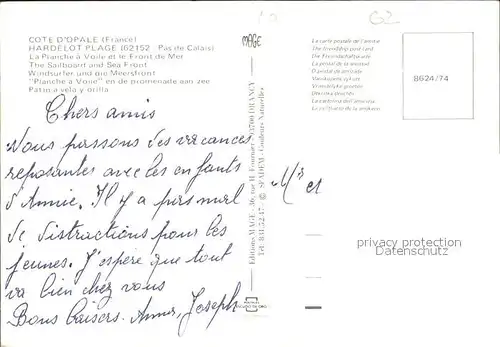 COTE D'OPALE (France)
HARDELOT PLAGE (62152 Pas de Calais)
La Planche à Voile et le Front de Mer
The Sailboard and Sea Front
Windsurfer und die Meersfront
"Planche à Voile" en de promenade aan zee
Patin a vela y orilla
Chers amis
Nous passons des vacances
reposantes avec les enfants
d'Annie. Il y a pas mal
de distractions pour les
jeunes. J'espère que tout
va bien chez vous
Bons baisers. Annie, Joseph
MAGE
Editions MAGE - 36, rue H. Fournier - 93700 DRANCY
Tél : 831.52.47 - © SPADEM - Couleurs Naturelles
G2
La carte postale de l'amitié
The friendship post card
Die Freundschaftskarte
La postal de la amistad
8624/74
Mr et
privacy protection
Datenschutz